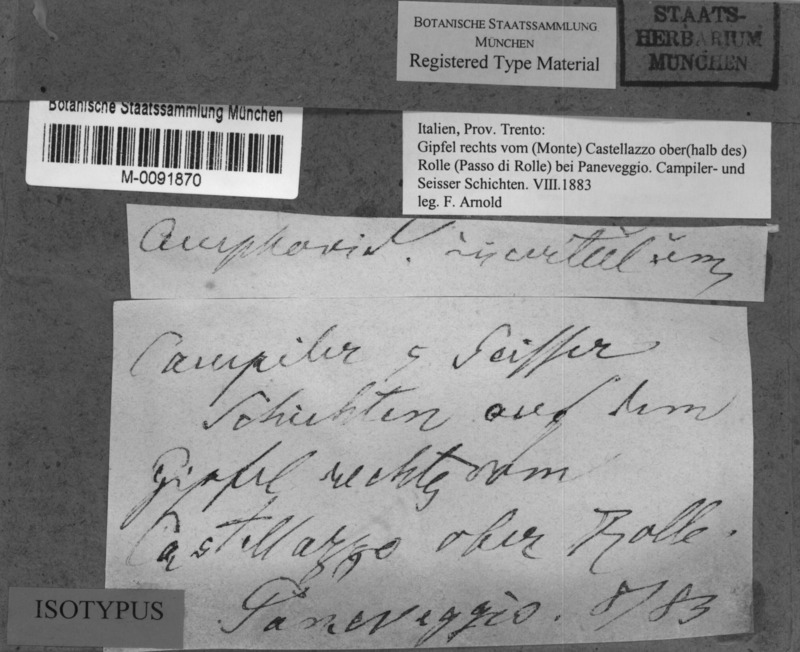 BOTANISCHE STAATSSAMMLUNG
MÜNCHEN
Registered Type Material
STAATS-
HERBARIUM
MÜNCHEN
Botanische Staatssammlung München
M-0091870
Italien, Prov. Trento:
Gipfel rechts vom (Monte) Castellazzo ober(halb des)
Rolle (Passo di Rolle) bei Paneveggio. Campiler- und
Seisser Schichten. VIII.1883
leg. F. Arnold
Campiler Seisser
Schichten auf dem
Gipfel rechts vom
Castellazzo ober Rolle.
Paneveggio. 8/83
ISOTYPUS